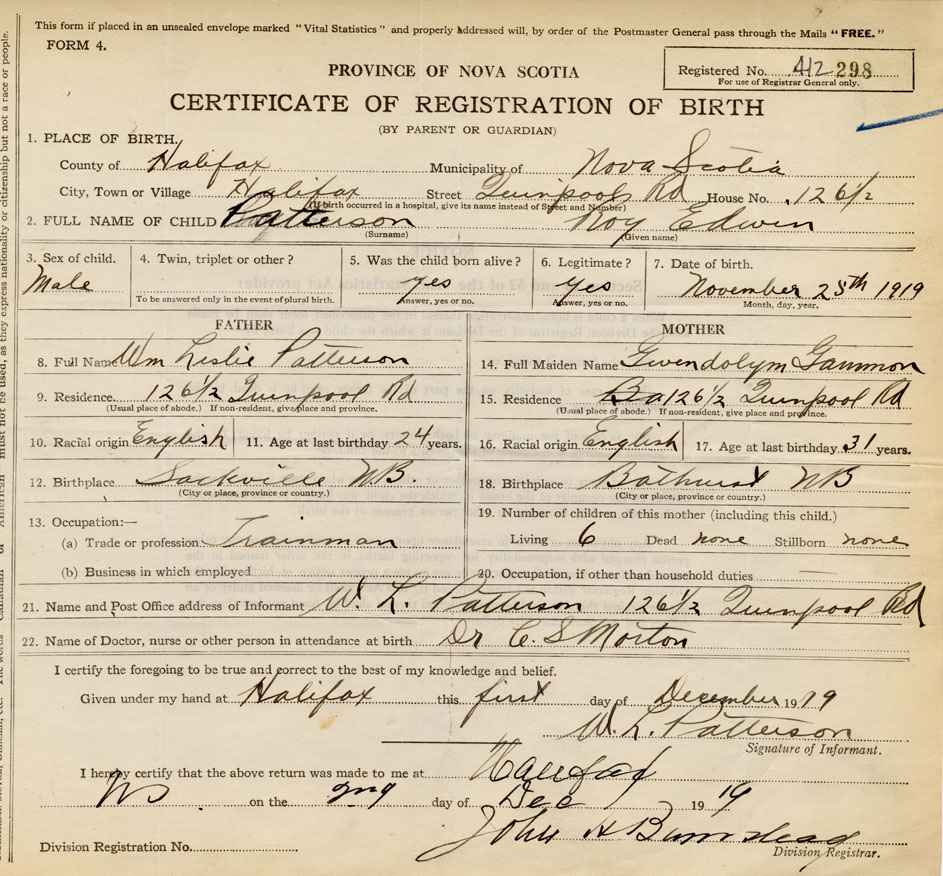 This form if placed in an unsealed envelope marked "Vital Statistics" and properly addressed will, by order of the Postmaster General pass through the Mails "FREE."
FORM 4.
Registered No. 412 298
For use of Registrar General only.
PROVINCE OF NOVA SCOTIA
CERTIFICATE OF REGISTRATION OF BIRTH
(BY PARENT OR GUARDIAN)
1. PLACE OF BIRTH.
County of Halifax Municipality of Nova Scotia
City, Town or Village Halifax Street Quinpool Rd House No. 126½
(If birth occurred in a hospital, give its name instead of Street and Number)
2. FULL NAME OF CHILD Patterson Roy Edwin
(Surname) (Given name)
3. Sex of child. 4. Twin, triplet or other? 5. Was the child born alive? 6. Legitimate? 7. Date of birth.
Male yes yes November 25th 1919
To be answered only in the event of plural birth. Answer, yes or no. Answer, yes or no. Month, day, year.
FATHER
8. Full Name Wm Leslie Patterson
9. Residence. 126½ Quinpool Rd
(Usual place of abode.) If non-resident, give place and province.
10. Racial origin English 11. Age at last birthday 24 years.
12. Birthplace Sackville NB.
(City or place, province or country.)
13. Occupation:—
(a) Trade or profession Trainman
(b) Business in which employed
MOTHER
14. Full Maiden Name Gwendolym Gammon
15. Residence 126½ Quinpool Rd
(Usual place of abode.) If non-resident, give place and province.
16. Racial origin English 17. Age at last birthday 31 years.
18. Birthplace Bathurst NB
(City or place, province or country.)
19. Number of children of this mother (including this child.)
Living 6 Dead none Stillborn none
20. Occupation, if other than household duties —
21. Name and Post Office address of Informant W. L. Patterson 126½ Quinpool Rd
22. Name of Doctor, nurse or other person in attendance at birth Dr C. S Morton
I certify the foregoing to be true and correct to the best of my knowledge and belief.
Given under my hand at Halifax this first day of December 1919
W. L. Patterson
Signature of Informant.
I hereby certify that the above return was made to me at Halifax
NS on the 2nd day of Dec 1919
John H Barnstead
Division Registrar.
Division Registration No.